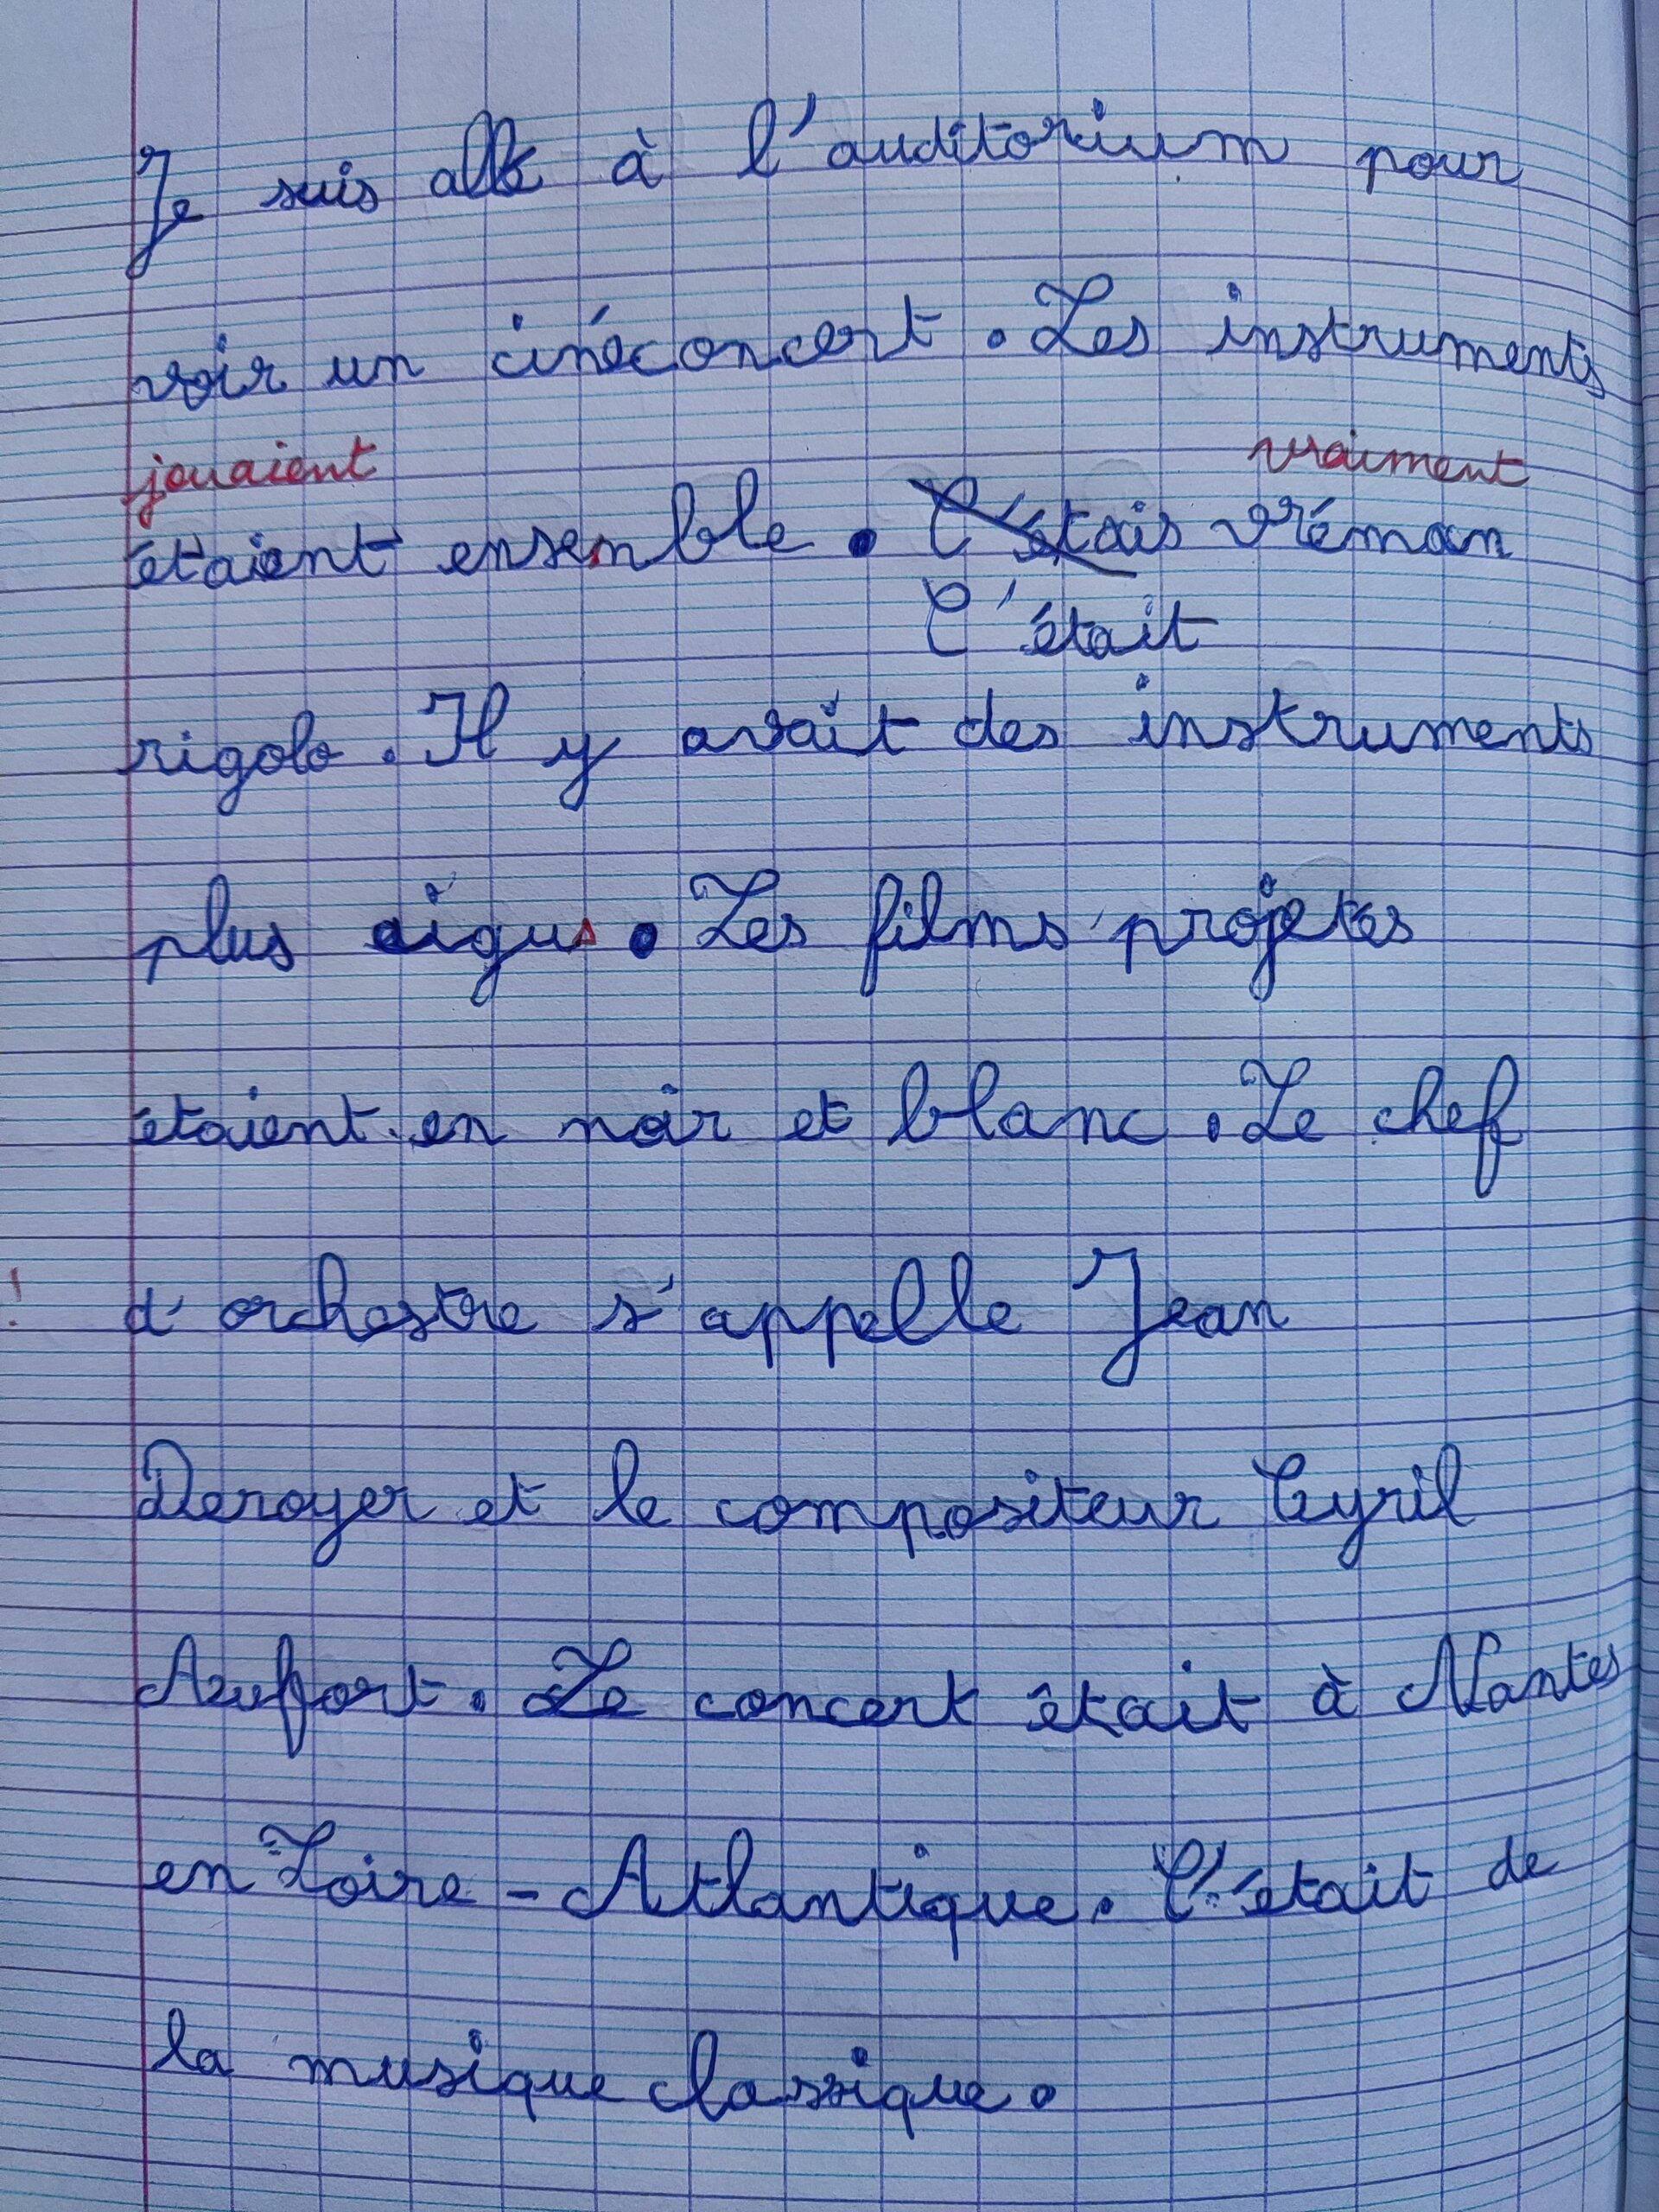 Je suis allé à l'auditorium pour
voir un cinéconcert. Les instruments
jouaient vraiment
étaient ensemble. C'étais vréman
C'était
rigolo. Il y avait des instruments
plus aigus. Les films projetés
étaient en noir et blanc. Le chef
!
d'orchestre s'appelle Jean
Deroyer et le compositeur Cyril
Aufort. Le concert était à Nantes
en Loire-Atlantique. C'était de
la musique classique.